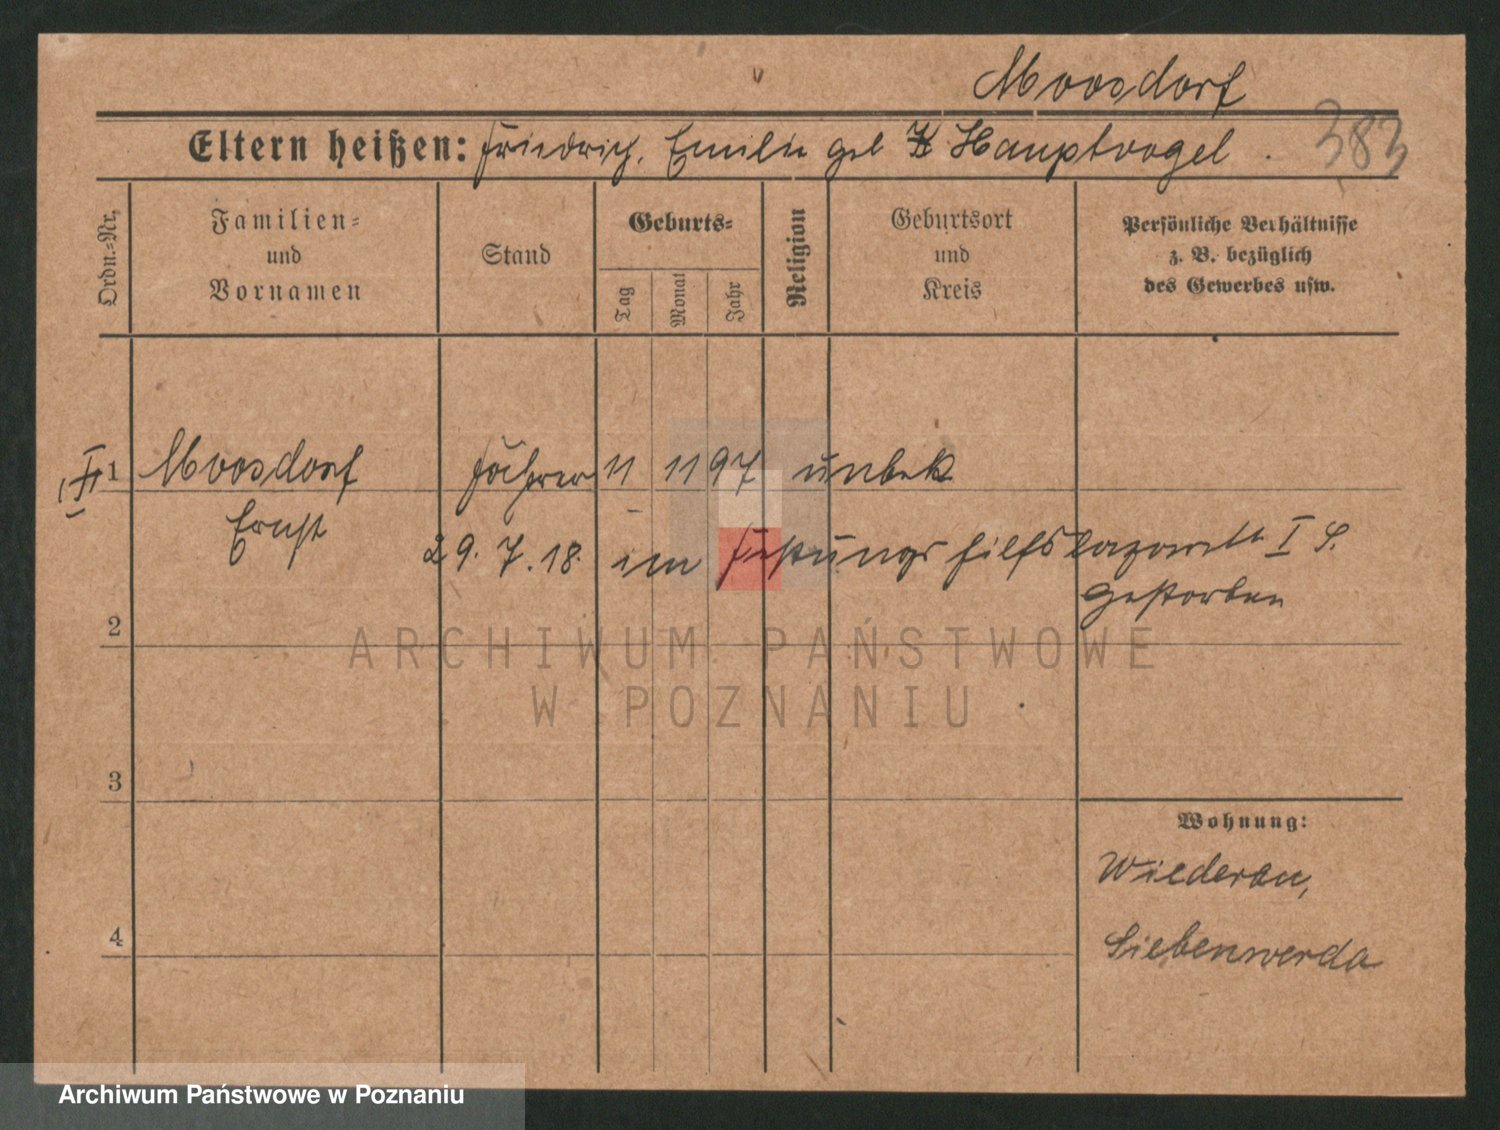 Moosdorf
Eltern heißen: Friedrich, Emilie geb Hauptvogel.
383
Ordn.-Nr.
Familien-
und
Vornamen
Stand
Geburts-
Tag
Monat
Jahr
Religion
Geburtsort
und
Kreis
Persönliche Verhältnisse
z. B. bezüglich
des Gewerbes usw.
II 1 Moosdorf 11 11 97 unbek
Ernst
29. 7. 18. im Festungshilfslazarett I P.
gestorben
2
ARCHIWUM PAŃSTWOWE
W POZNANIU
3
Wohnung:
Wiederau,
4
Liebenwerda
Archiwum Państwowe w Poznaniu